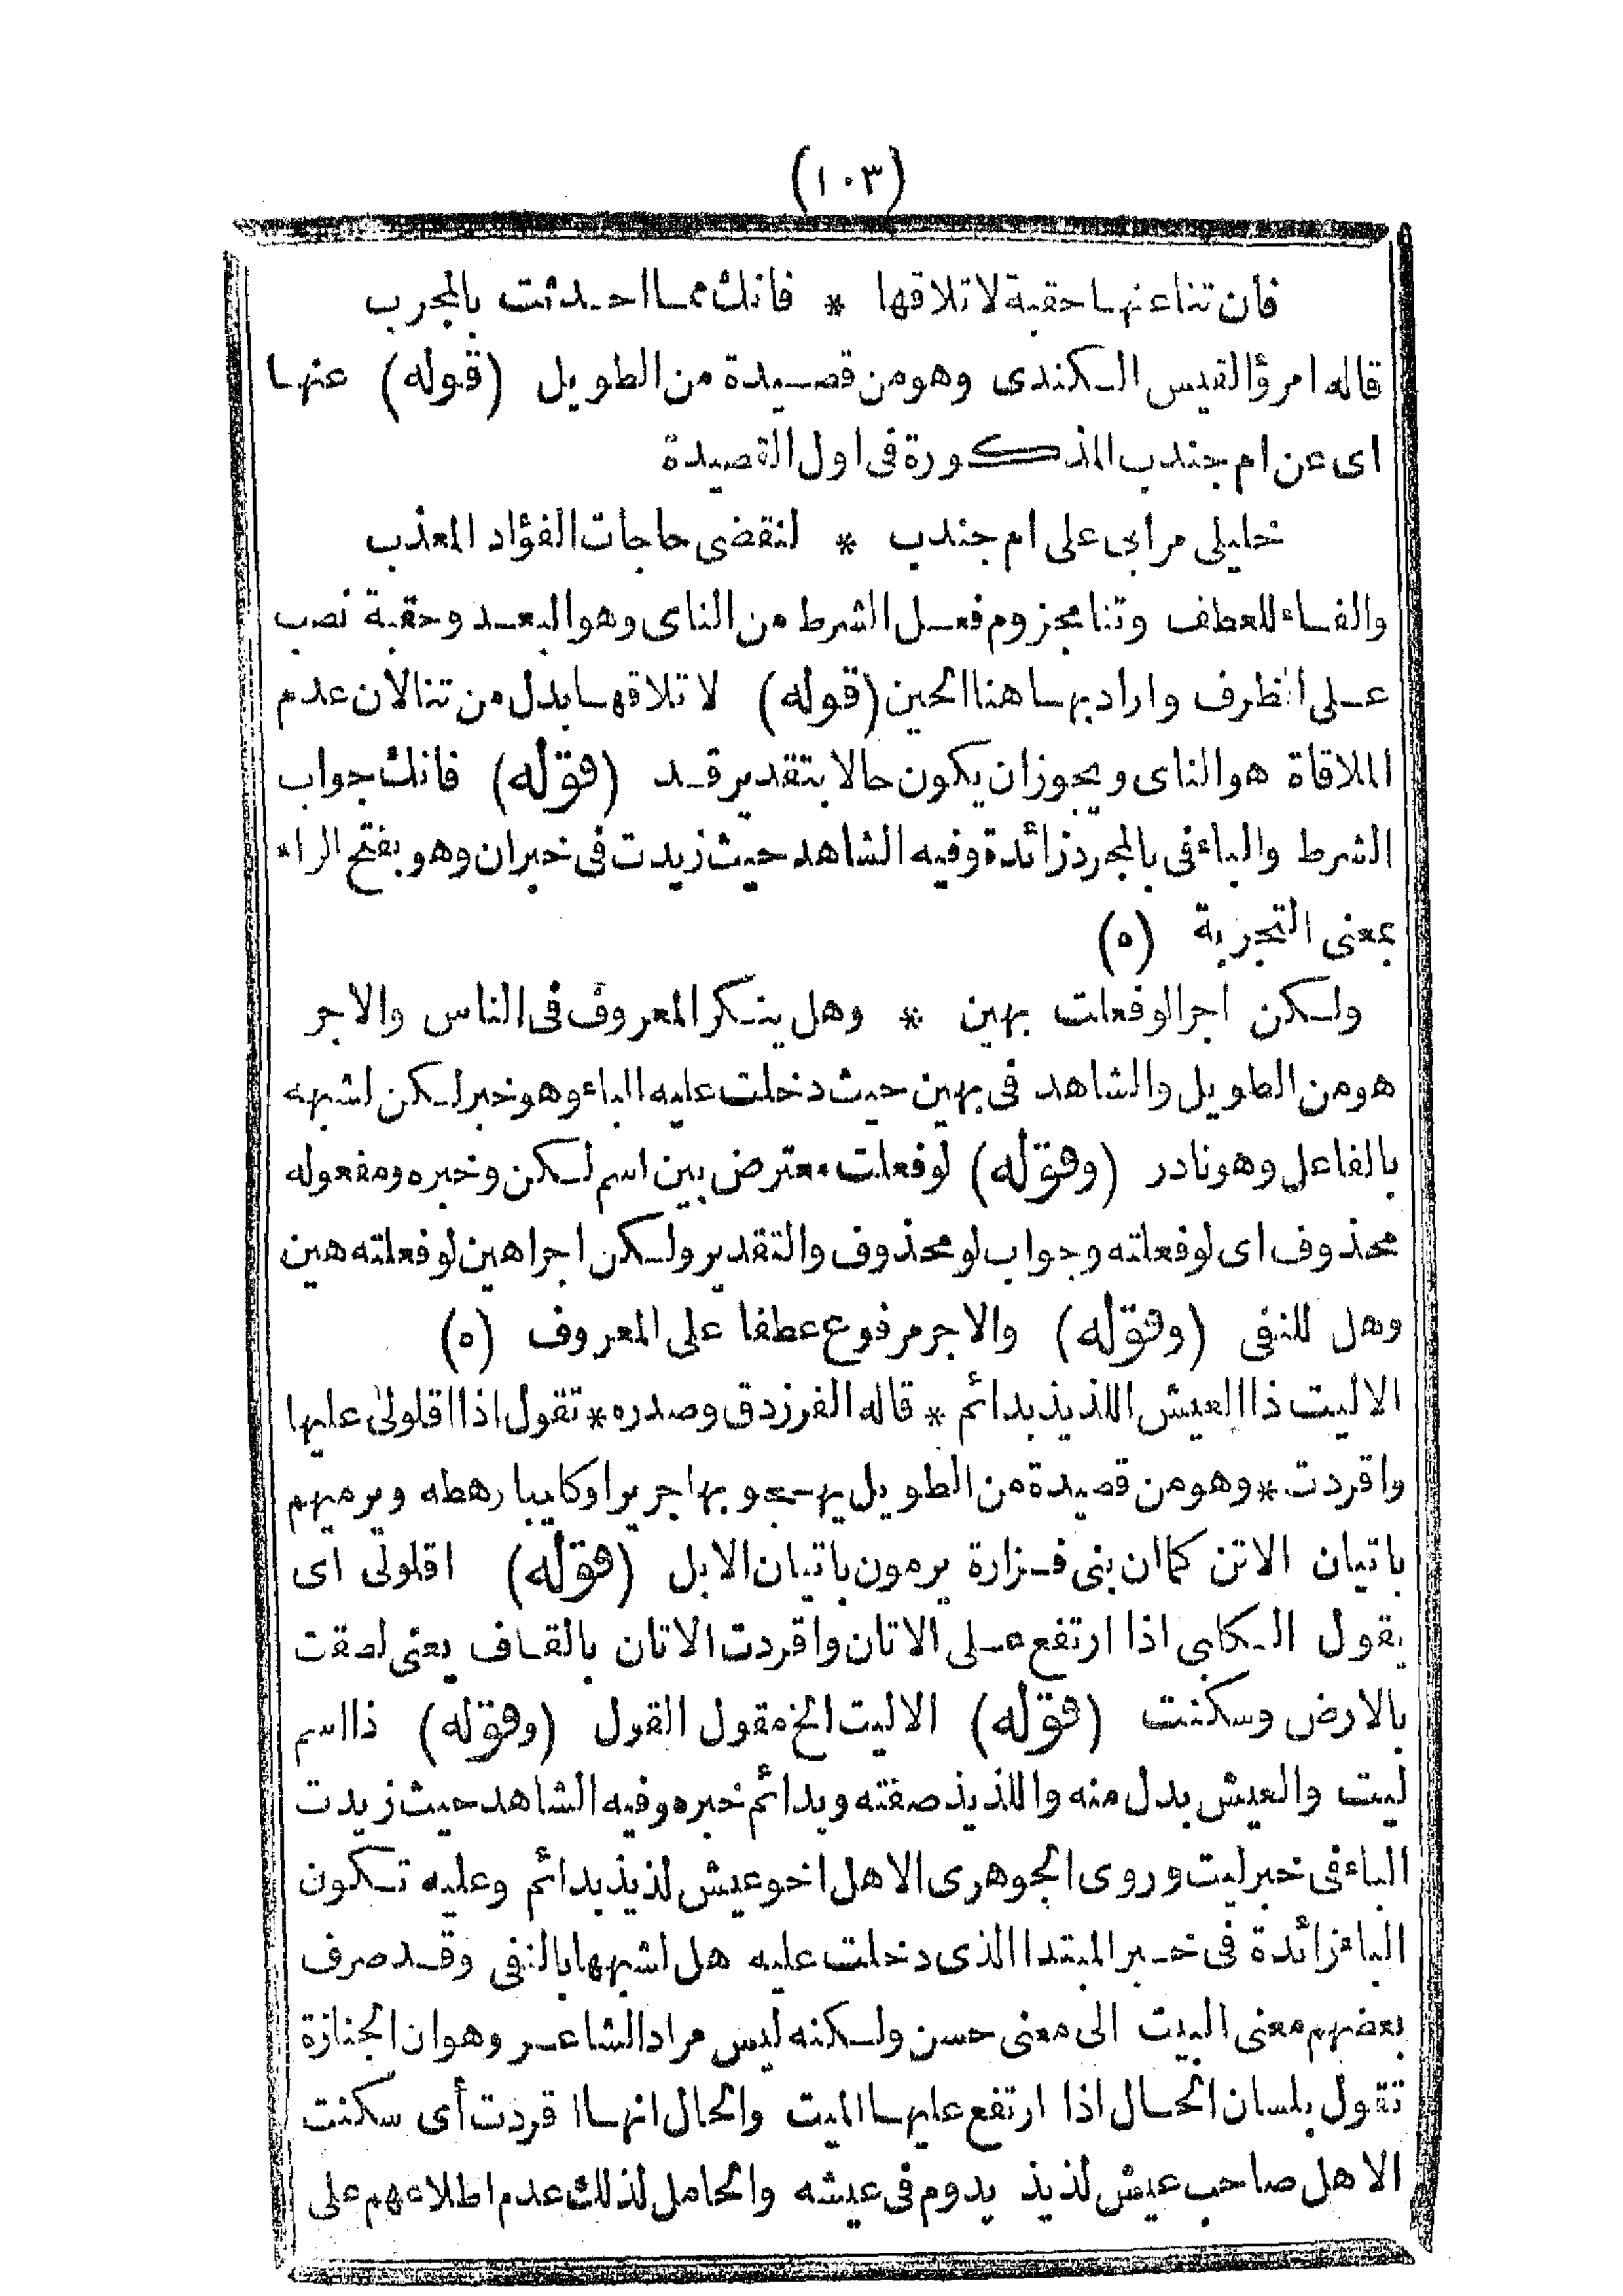 (١٠٣)
فان تناعنها حقبة لا تلاقها * فانك مما احدثت بالمجرب
قاله امرؤ القيس الكندى وهو من قصيدة من الطويل (قوله) عنها
اى عن ام جندب المذكورة فى اول القصيدة
خليلى مرابى على ام جندب * لنقضى حاجات الفؤاد المعذب
والفاء للعطف وتنا مجزوم فعل الشرط من الناى وهو البعد وحقبة نصب
على الظرف واراد بها هنا الحين (قوله) لا تلاقها بدل من تنا لان عدم
الملاقاة هو الناى ويجوز ان يكون حالا بتقدير قد (قوله) فانك جواب
الشرط والباء فى بالمجرد زائدة وفيه الشاهد حيث زيدت فى خبر ان وهو بفتح الراء
بمعنى التجربة (ه)
ولكن اجرا لو فعلت بهين * وهل ينكر المعروف فى الناس والاجر
هو من الطويل والشاهد فى بهين حيث دخلت عليه الباء وهو خبر لكن لشبهه
بالفاعل وهو نادر (وقوله) لو فعلت معترض بين اسم لكن وخبره ومفعوله
محذوف اى لو فعلته وجواب لو محذوف والتقدير ولكن اجرا هين لو فعلته هين
وهل للنفى (وقوله) والاجر مرفوع عطفا على المعروف (ه)
الا ليت ذا العيش اللذيذ بدائم * قاله الفرزدق وصدره * تقول اذا اقلولى عليها
واقردت * وهو من قصيدة من الطويل يهجو بها جريرا وكليبا رهطه ويرميهم
باتيان الاتن كما ان بنى فزارة يرمون باتيان الابل (قوله) اقلولى اى
يقول الكلبى اذا ارتفع على الاتان واقردت الاتان بالقاف يعنى لصقت
بالارض وسكنت (قوله) الا ليت الخ مقول القول (وقوله) ذا اسم
ليت والعيش بدل منه واللذيذ صفته وبدائم خبره وفيه الشاهد حيث زيدت
الباء فى خبر ليت وروى الجوهرى الا هل اخو عيش لذيذ بدائم وعليه تكون
الباء زائدة فى خبر المبتدا الذى دخلت عليه هل لشبهها بالنفى وقد صرف
بعضهم معنى البيت الى معنى حسن ولكنه ليس مراد الشاعر وهو ان الجنازة
تقول بلسان الحال اذا ارتفع عليها الميت والحال انها اقردت أى سكنت
الا هل صاحب عيش لذيذ يدوم فى عيشه والحامل لذلك عدم اطلاعهم على